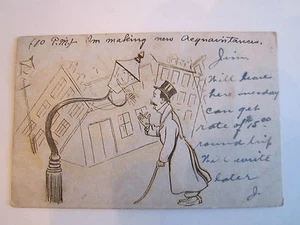 10 P.M. I'm making new Acquaintances.
Jim
Will leave
here sunday
can get
rate of $15.00
round trip
will write
later
J.